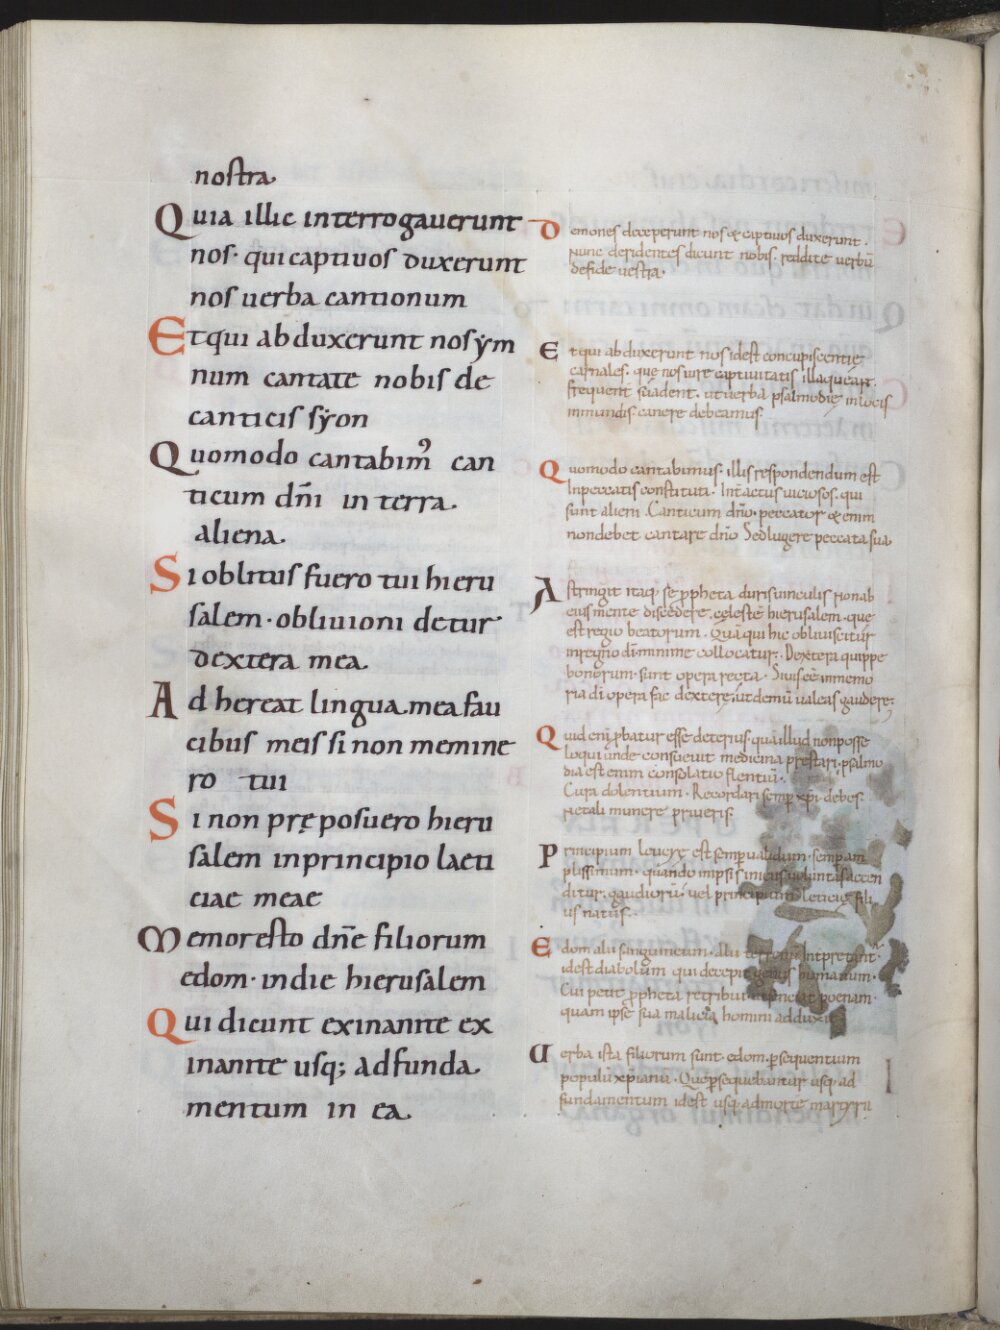 nostra.
Quia illic interrogauerunt
nos· qui captiuos duxerunt
nos uerba cantionum
Et qui abduxerunt nos ẏm
num cantate nobis de
canticis sẏon
Quomodo cantabimꝰ can
ticum dn̄i in terra.
aliena.
Si oblitus fuero tui hieru
salem· obliuioni detur
dextera mea.
Ad hereat lingua mea fau
cibus meis si non memine
ro tui
Si non pręposuero hieru
salem in principio laeti
ciae meae
Memor esto dn̄e filiorum
edom· in die hierusalem
Qui dicunt exinanite ex
inanite usq; ad funda
mentum in ea.
Demones deceperunt nos & captiuos duxerunt.
Nunc deridentes dicunt nobis. reddite uerbū
de fide uestra.
Et qui abduxerunt nos id est concupiscentię
carnales. quę nos iure captiuitatis illaqueant.
frequent̄ suadent. ut uerba psalmodię in locis
inmundis canere debeamus.
Quomodo cantabimus. illis respondendum est
In peccatis constituti. Int̄ actus uiciosos. qui
sunt alieni. Canticum dn̄o. peccator & enim
non debet cantare dn̄o Sed lugere peccata sua
Astringit itaq; se ꝓpheta duris uinculis
eius mente discedere. cęlestē hierusalem. quę
est regio beatorum. Quā qui hic obliuiscitur
in regno di minime collocatur. Dextera quippe
bonorum. sunt opera recta. in memo
ria di opera fac dexterę, ut demū ualeas gaudere;
Quid eni ꝓbatur esse deterius. quā illud non posse
loqui unde consueuit medicina pręstari. psalmo
dia est enim consolatio flentiū.
Cura dolentium. Recordari semꝑ xp̄i debes.
ne tali munere priueris.
Principium leticię est semꝑ ualidum. semꝑ am
plissimum. quando in ipsis iniciis uoluntas accen
ditur. gaudiorū. uel principium leticię fili
us natus.
Edom alii sanguinem. alii terrenus int̄pretant̄.
id est diabolum qui decepit genus humanum.
Cui petit ꝓpheta retribui poenam.
quam ipse sua malicia homini adduxit
Uerba ista filiorum sunt. edom. ꝑsequentium
populū xp̄ianū. Quē ꝑsequebantur usq; ad
fundamentum id est usq; ad mortē martyrii